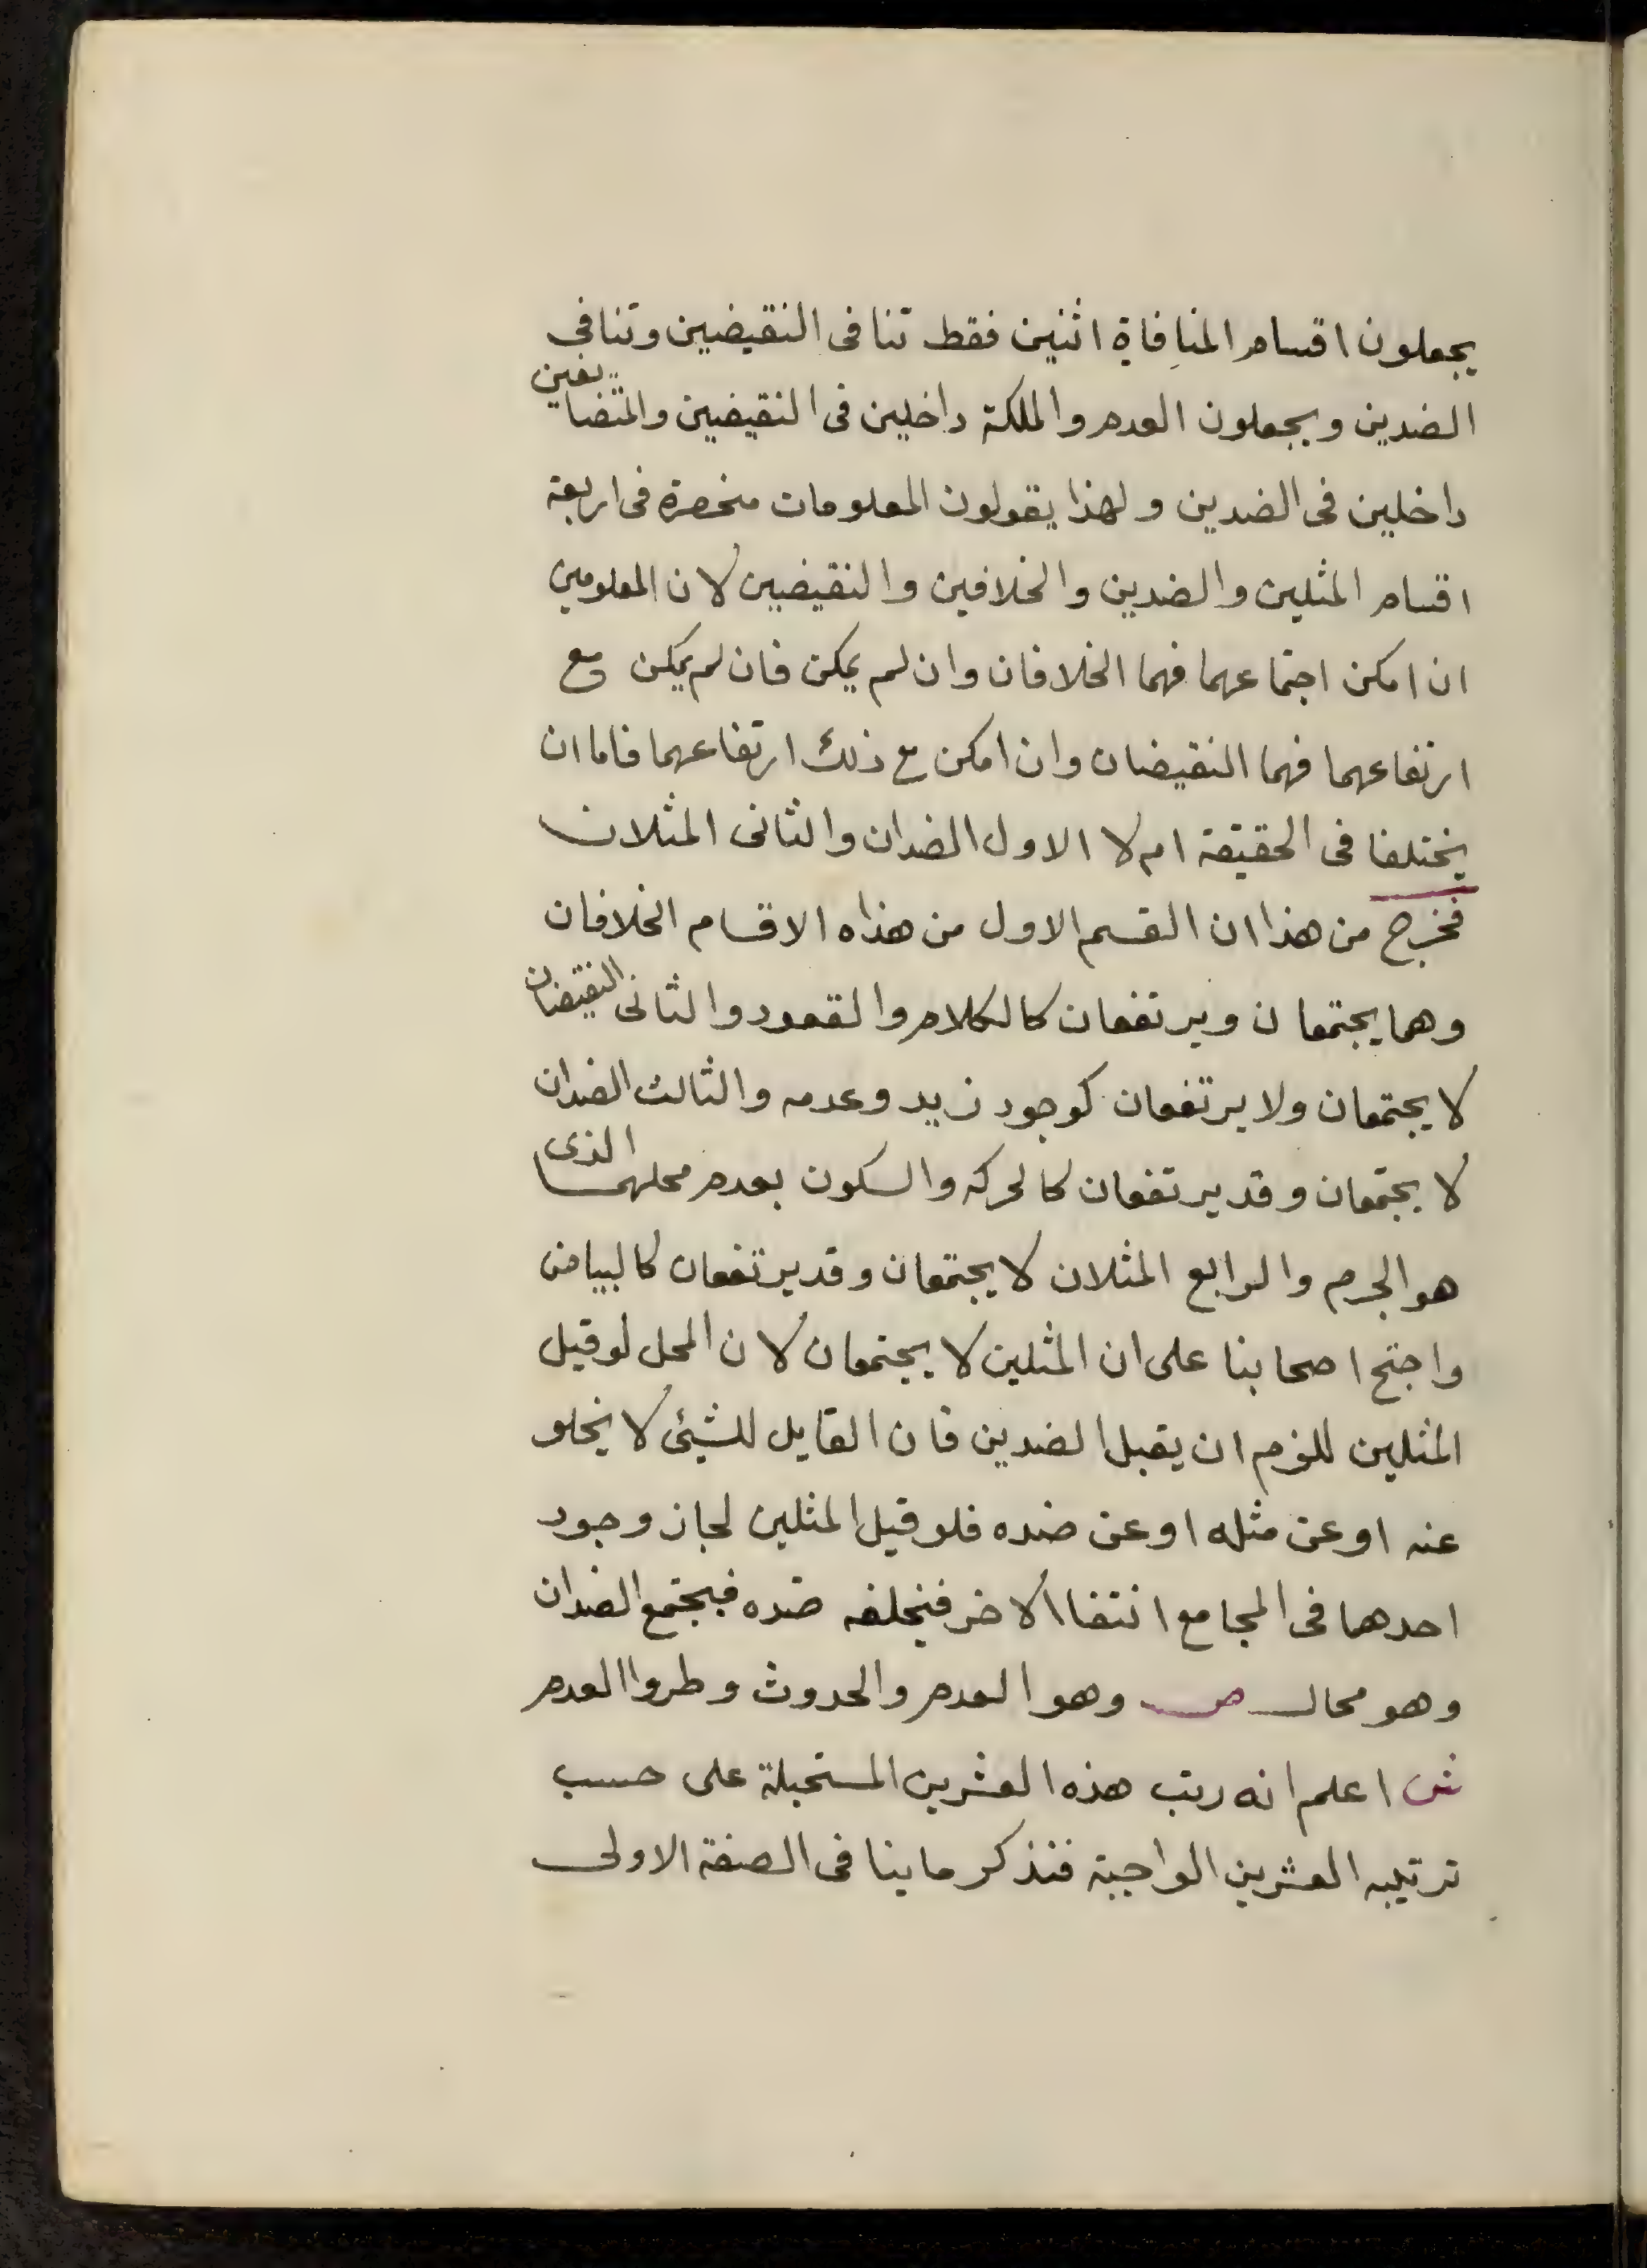 يجعلون اقسام المنافاة اثنين فقط تنافى النقيضين وتنافى
الضدين ويجعلون العدم والملكة داخلين فى النقيضين والمتضايفين
داخلين فى الضدين ولهذا يقولون المعلومات منحصرة فى اربعة
اقسام المثلين والضدين والخلافين والنقيضين لان المعلومين
ان امكن اجتماعهما فهما الخلافان وان لم يمكن فان لم يمكن مع
ارتفاعهما فهما النقيضان وان امكن مع ذلك ارتفاعهما فاما ان
يختلفا فى الحقيقة ام لا الاول الضدان والثانى المثلان
فخرج من هذا ان القسم الاول من هذاه الاقسام الخلافان
وهما يجتمعان ويرتفعان كالكلام والقعود والثانى النقيضان
لا يجتمعان ولا يرتفعان كوجود زيد وعدمه والثالث الضدان
لا يجتمعان وقد يرتفعان كالحركه والسكون بعدم محلهما الذى
هو الجرم والرابع المثلان لا يجتمعان وقد يرتفعان كالبياض
واحتج اصحابنا على ان المثلين لا يجتمعان لان المحل لو قيل
المثلين للزم ان يقبل الضدين فان القايل للشيئ لا يخلو
عنه او عن مثله او عن ضده فلو قيل المثلين لجاز وجود
احدهما فى المجامع انتفا الاخر فيخلفه ضده فيجتمع الضدان
وهو محال ص وهو العدم والحدوث وطروا العدم
ش اعلم انه رتب هذه العشرين المستحيلة على حسب
ترتيبه العشرين الواجبة فنذكر ما ينافى الصفة الاولى